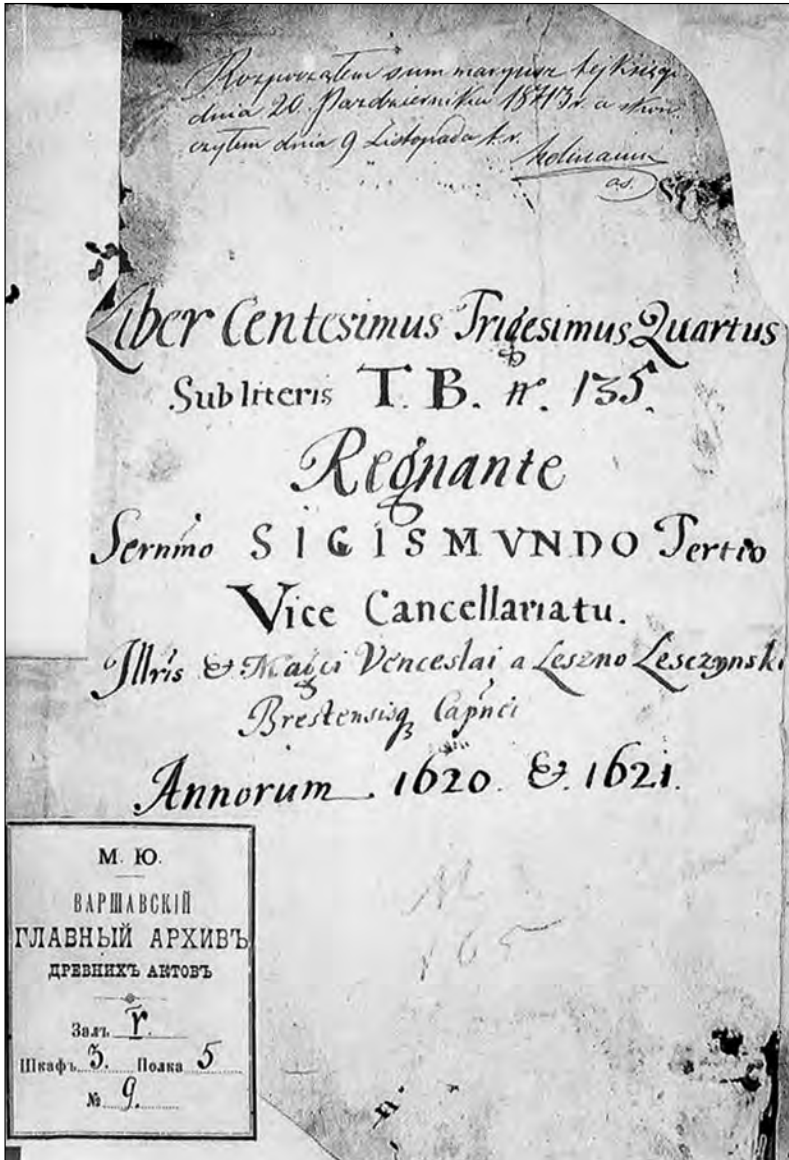 Rozpocząłem summaryusz tej Księgi
dnia 20. Pazdziernika 1873 r. a skoń-
czyłem dnia 9 Listopada t. r.
as.
Liber Centesimus Trigesimus Quartus
Sub literis T. B. nº. 135.
Regnante
Sernmo SIGISMVNDO Tertio
Vice Cancellariatu.
Illris & Magci Venceslai a Leszno Lesczynski
Brestensisq Capnci
Annorum 1620. &. 1621.
М. Ю.
ВАРШАВСКІЙ
ГЛАВНЫЙ АРХИВЪ
ДРЕВНИХЪ АКТОВЪ
Залъ I.
Шкафъ 3. Полка 5
№ 9.
165
n.